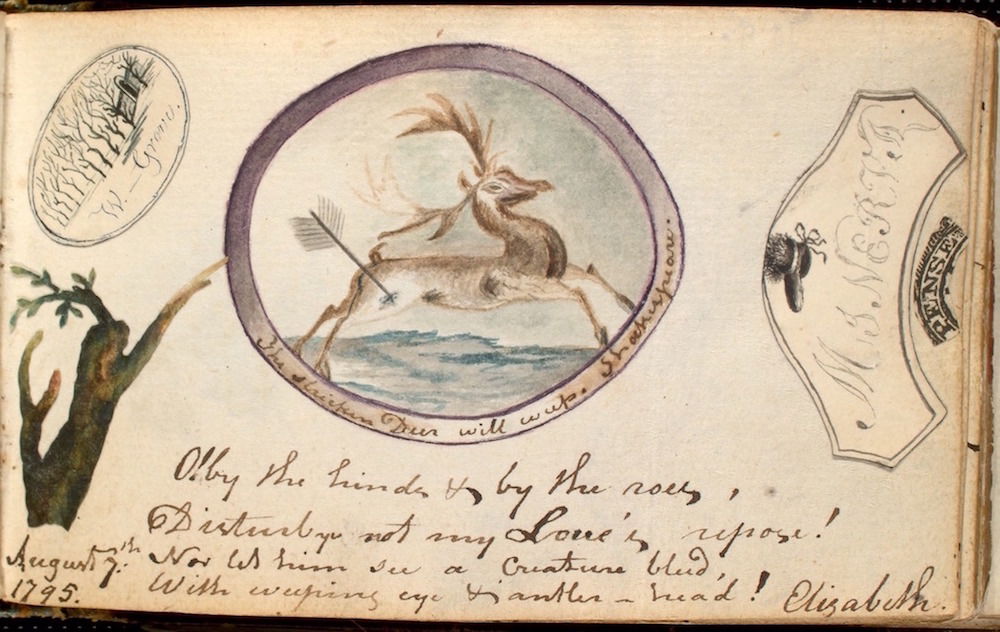 W. Grove.
The stricken Deer will weep. Shakespear.
MINERVA
PENSEZ
O! by the hinds & by the roes,
Disturb ye not my Love's repose!
Nor let him see a creature bleed,
With weeping eye & antler-head!
August 7th.
1795.
Elizabeth.